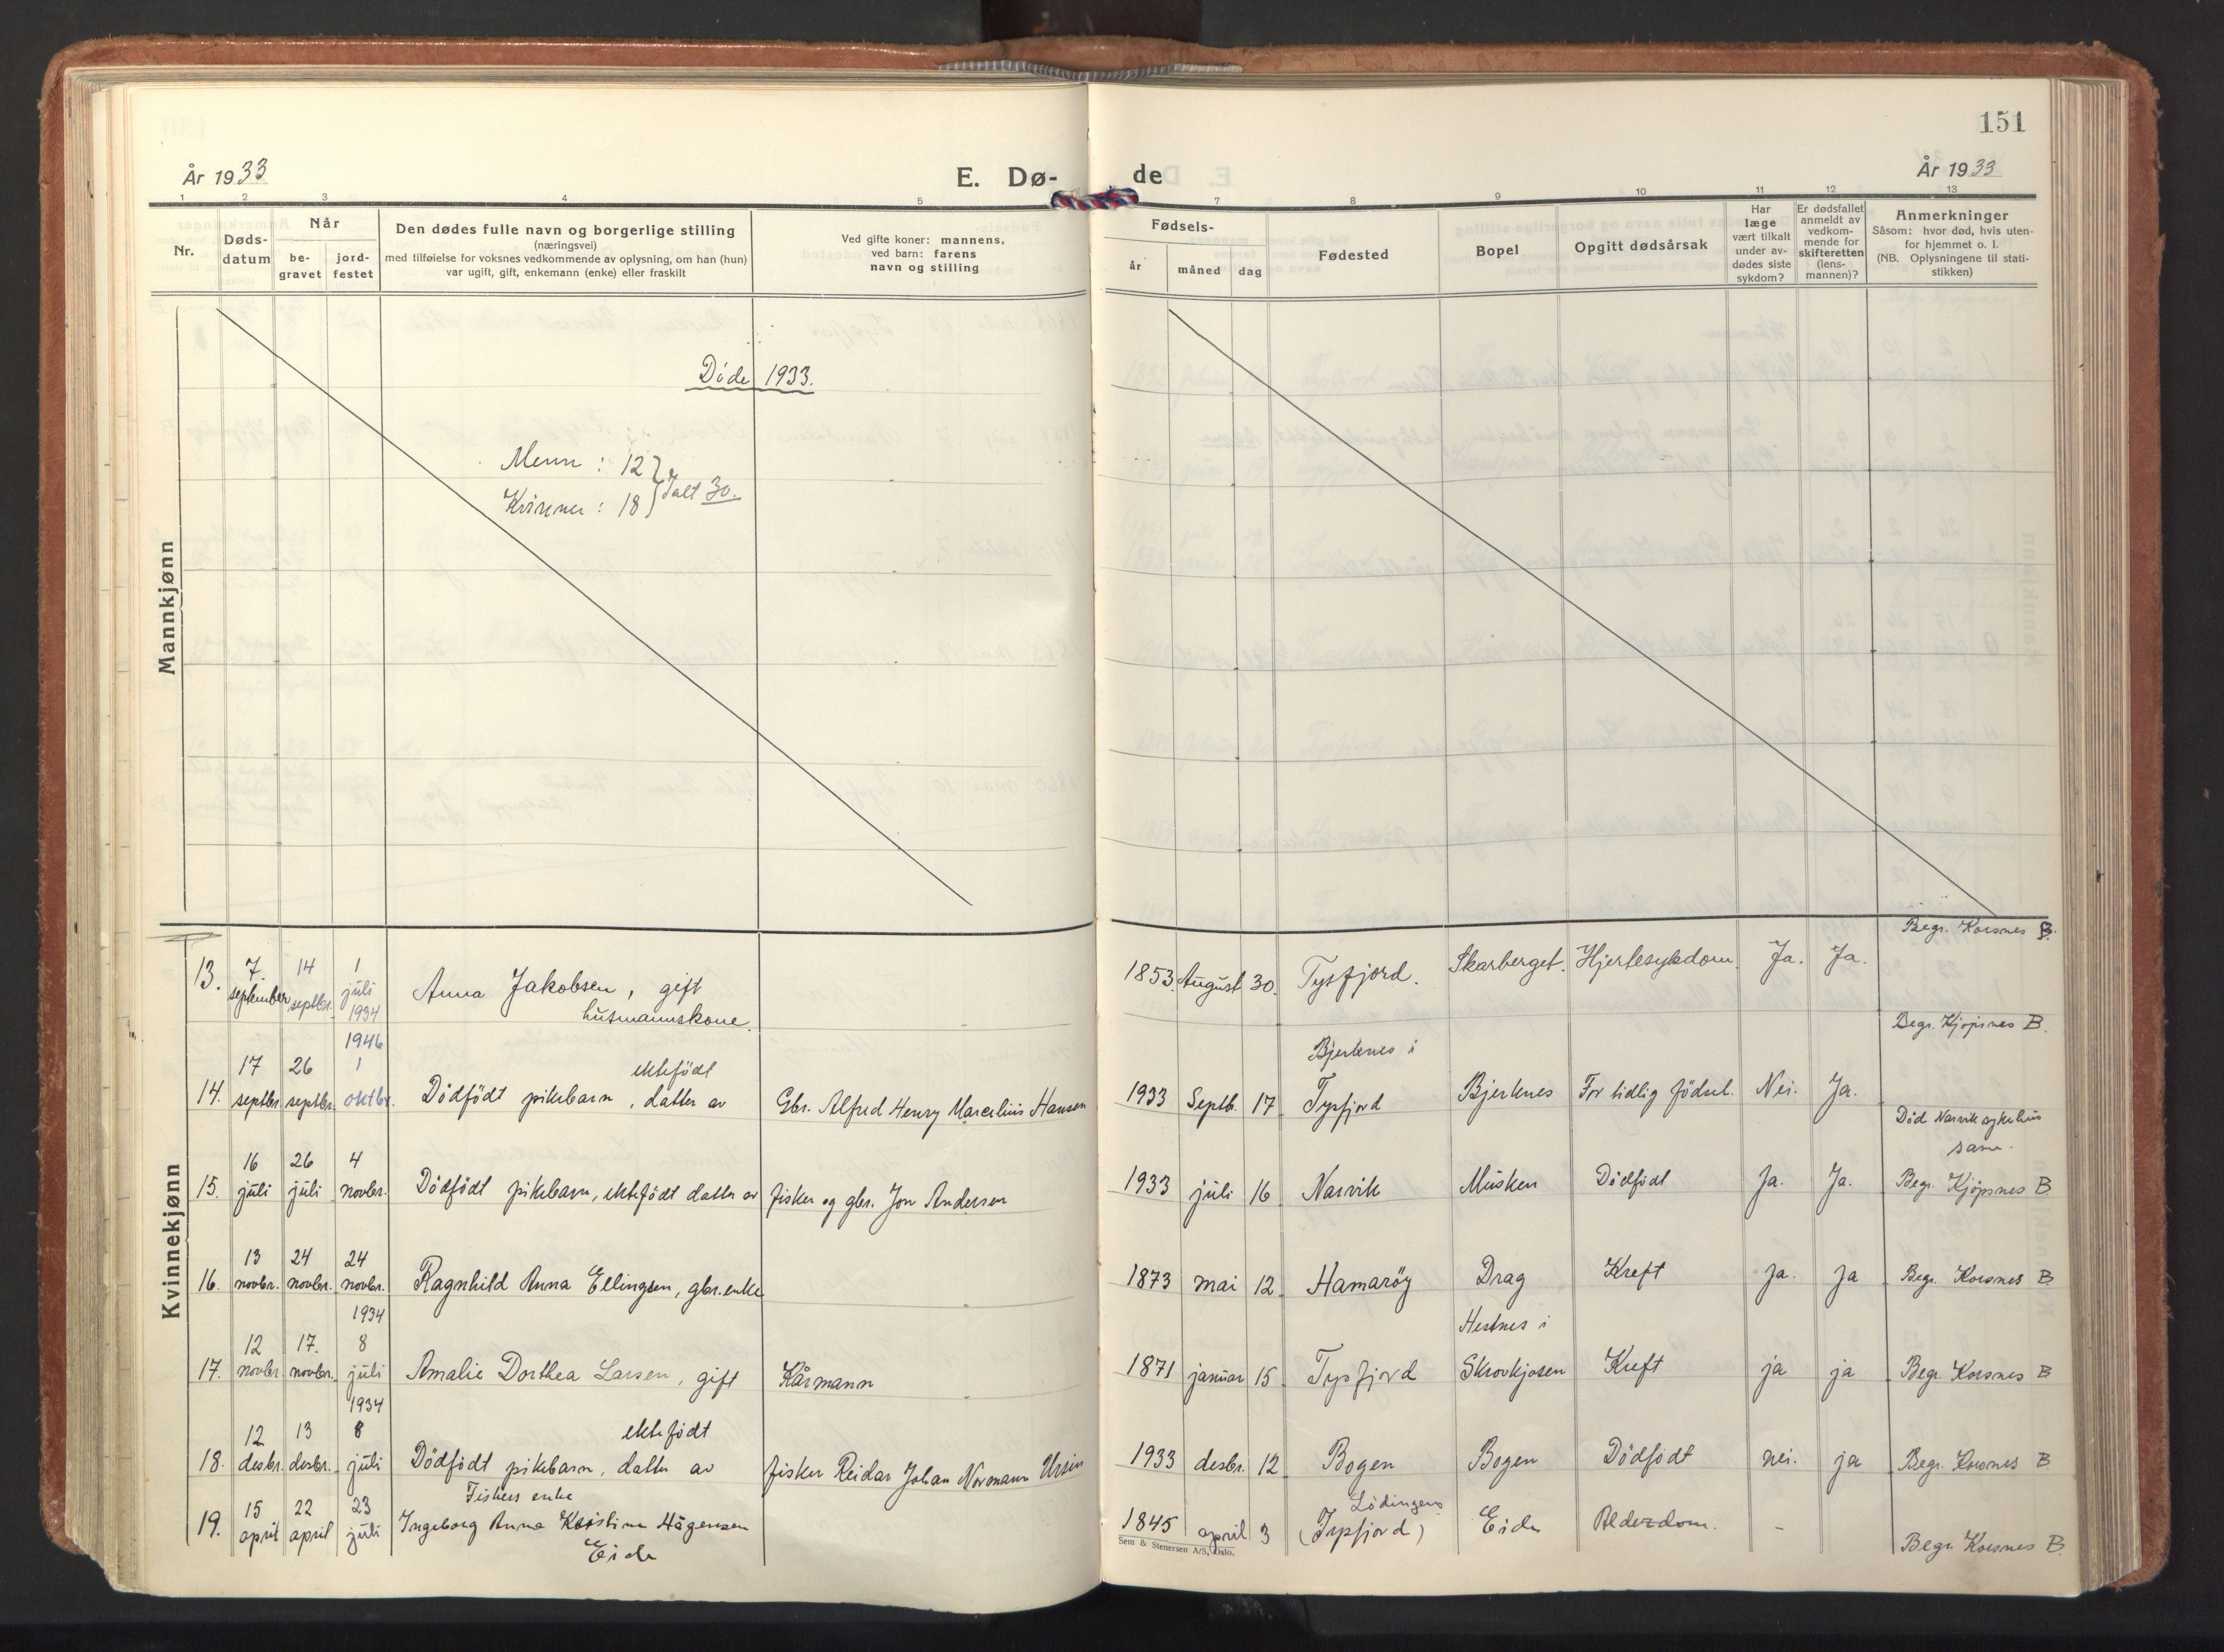 151
År 1933
E. Dø-
de
År 1933
1 2 3 4 5 7 8 9 10 11 12 13
Nr.
Døds-
datum
Når
be-
gravet
jord-
festet
Den dødes fulle navn og borgerlige stilling
(næringsvei)
med tilføielse for voksnes vedkommende av oplysning, om han (hun)
var ugift, gift, enkemann (enke) eller fraskilt
Ved gifte koner: mannens,
ved barn: farens
navn og stilling
Fødsels-
år
måned
dag
Fødested
Bopel
Opgitt dødsårsak
Har
læge
vært tilkalt
under av-
dødes siste
sykdom?
Er dødsfallet
anmeldt av
vedkom-
mende for
skifteretten
(lens-
mannen)?
Anmerkninger
Såsom: hvor død, hvis uten-
for hjemmet o. l.
(NB. Oplysningene til stati-
stikken)
Mannkjønn
Döde 1933.
Menn : 12
Kvinner : 18
Ialt 30.
Kvinnekjønn
Begr. Korsnes B.
13. 7. september 14 septbr. 1 juli 1934 Anna Jakobsen, gift
husmannskone.
1853. August 30. Tysfjord. Skarberget. Hjertesykdom. Ja. Ja.
Begr. Kjöpsnes B.
14. 17 septbr. 26 septbr. 1946 1 oktbr. Dödfödt pikebarn, ektefödt datter av Gbr. Alfred Henry Marcelius Hansen
1933 Septb. 17 Bjerknes i Tysfjord Bjerknes For tidlig födsel. Nei. Ja.
Död Narvik sykehus
same.
15. 16 juli 26 juli 4 novbr. Dödfödt pikebarn, ektefödt datter av fisker og gbr. Jon Andersen
1933 juli 16 Narvik Musken Dödfödt Ja. Ja. Begr. Kjöpsnes B.
16. 13 novbr. 24 novbr. 24 novbr. Ragnhild Anna Ellingsen, gbr. enke
1873 mai 12 Hamaröy Drag Kreft ja. ja Begr. Korsnes B
17. 12 novbr. 17. novbr. 1934 8 juli Amalie Dorthea Larsen, gift Kårmann
1871 januar 15 Tysfjord Hestnes i Skrovkjosen Kreft ja ja Begr. Korsnes B
18. 12 desbr. 13 desbr. 1934 8 juli Dödfödt pikebarn, ektefödt datter av fisker Reidar Johan Normann Ursin
1933 desbr. 12 Bogen Bogen Dödfödt nei. ja Begr. Korsnes B
19. 15 april 22 april 23 juli Fiskers enke
Ingeborg Anna Kristine Hågensen
Eide
1845 april 3 Lödingen (Tysfjord) Eide Alderdom. - Begr. Korsnes B
Sem & Stenersen A/S, Oslo.